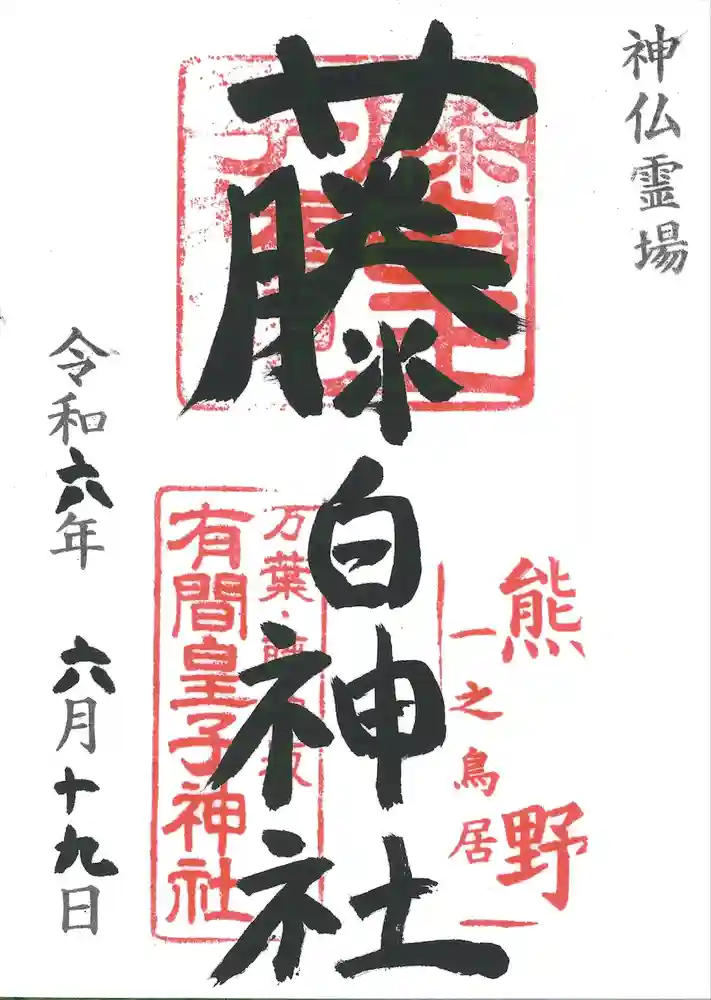 神仏霊場
熊野
一之鳥居
藤白神社
万葉・藤白坂
有間皇子神社
令和六年 六月十九日